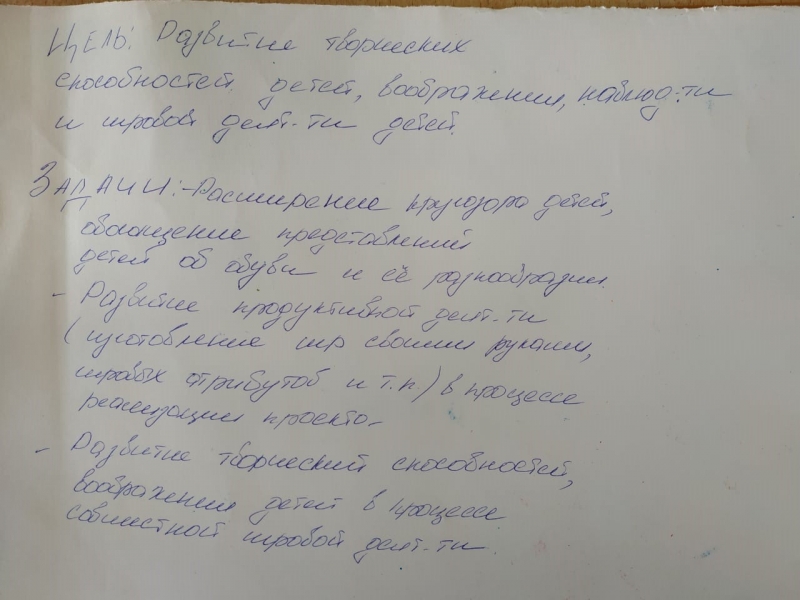 Цель: Развитие творческих
способностей детей, воображения, наблюд-ти
и игровой деят-ти детей.
Задачи: - Расширение кругозора детей,
обогащение представлений
детей об обуви и её разнообразии.
- Развитие продуктивной деят-ти
(изготовление игр своими руками,
игровых атрибутов и т.п) в процессе
реализации проекта.
- Развитие творческий способностей,
воображения детей в процессе
совместной игровой деят-ти.